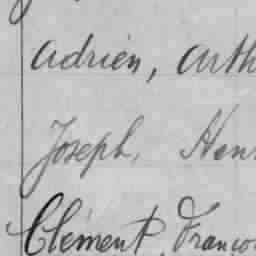 Adrien, Arth
Joseph, Hen
Clément, Franço